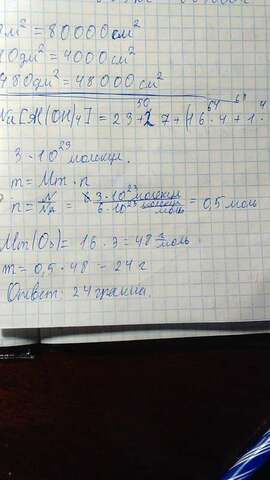 м² = 80000 см²
0дм² = 4000 см²
480дм² = 48000 см²
50 64 68
Na[Al(OH)₄] = 23+27+(16·4+1·4
3·10²³ молекул.
m = Mm·n
n = N/Nₐ = 3·10²³ молекул / 6·10²³ молекул/моль = 0,5 моль
Mm(O₃) = 16·3 = 48 г/моль
m = 0,5·48 = 24 г
Ответ: 24 грамма.